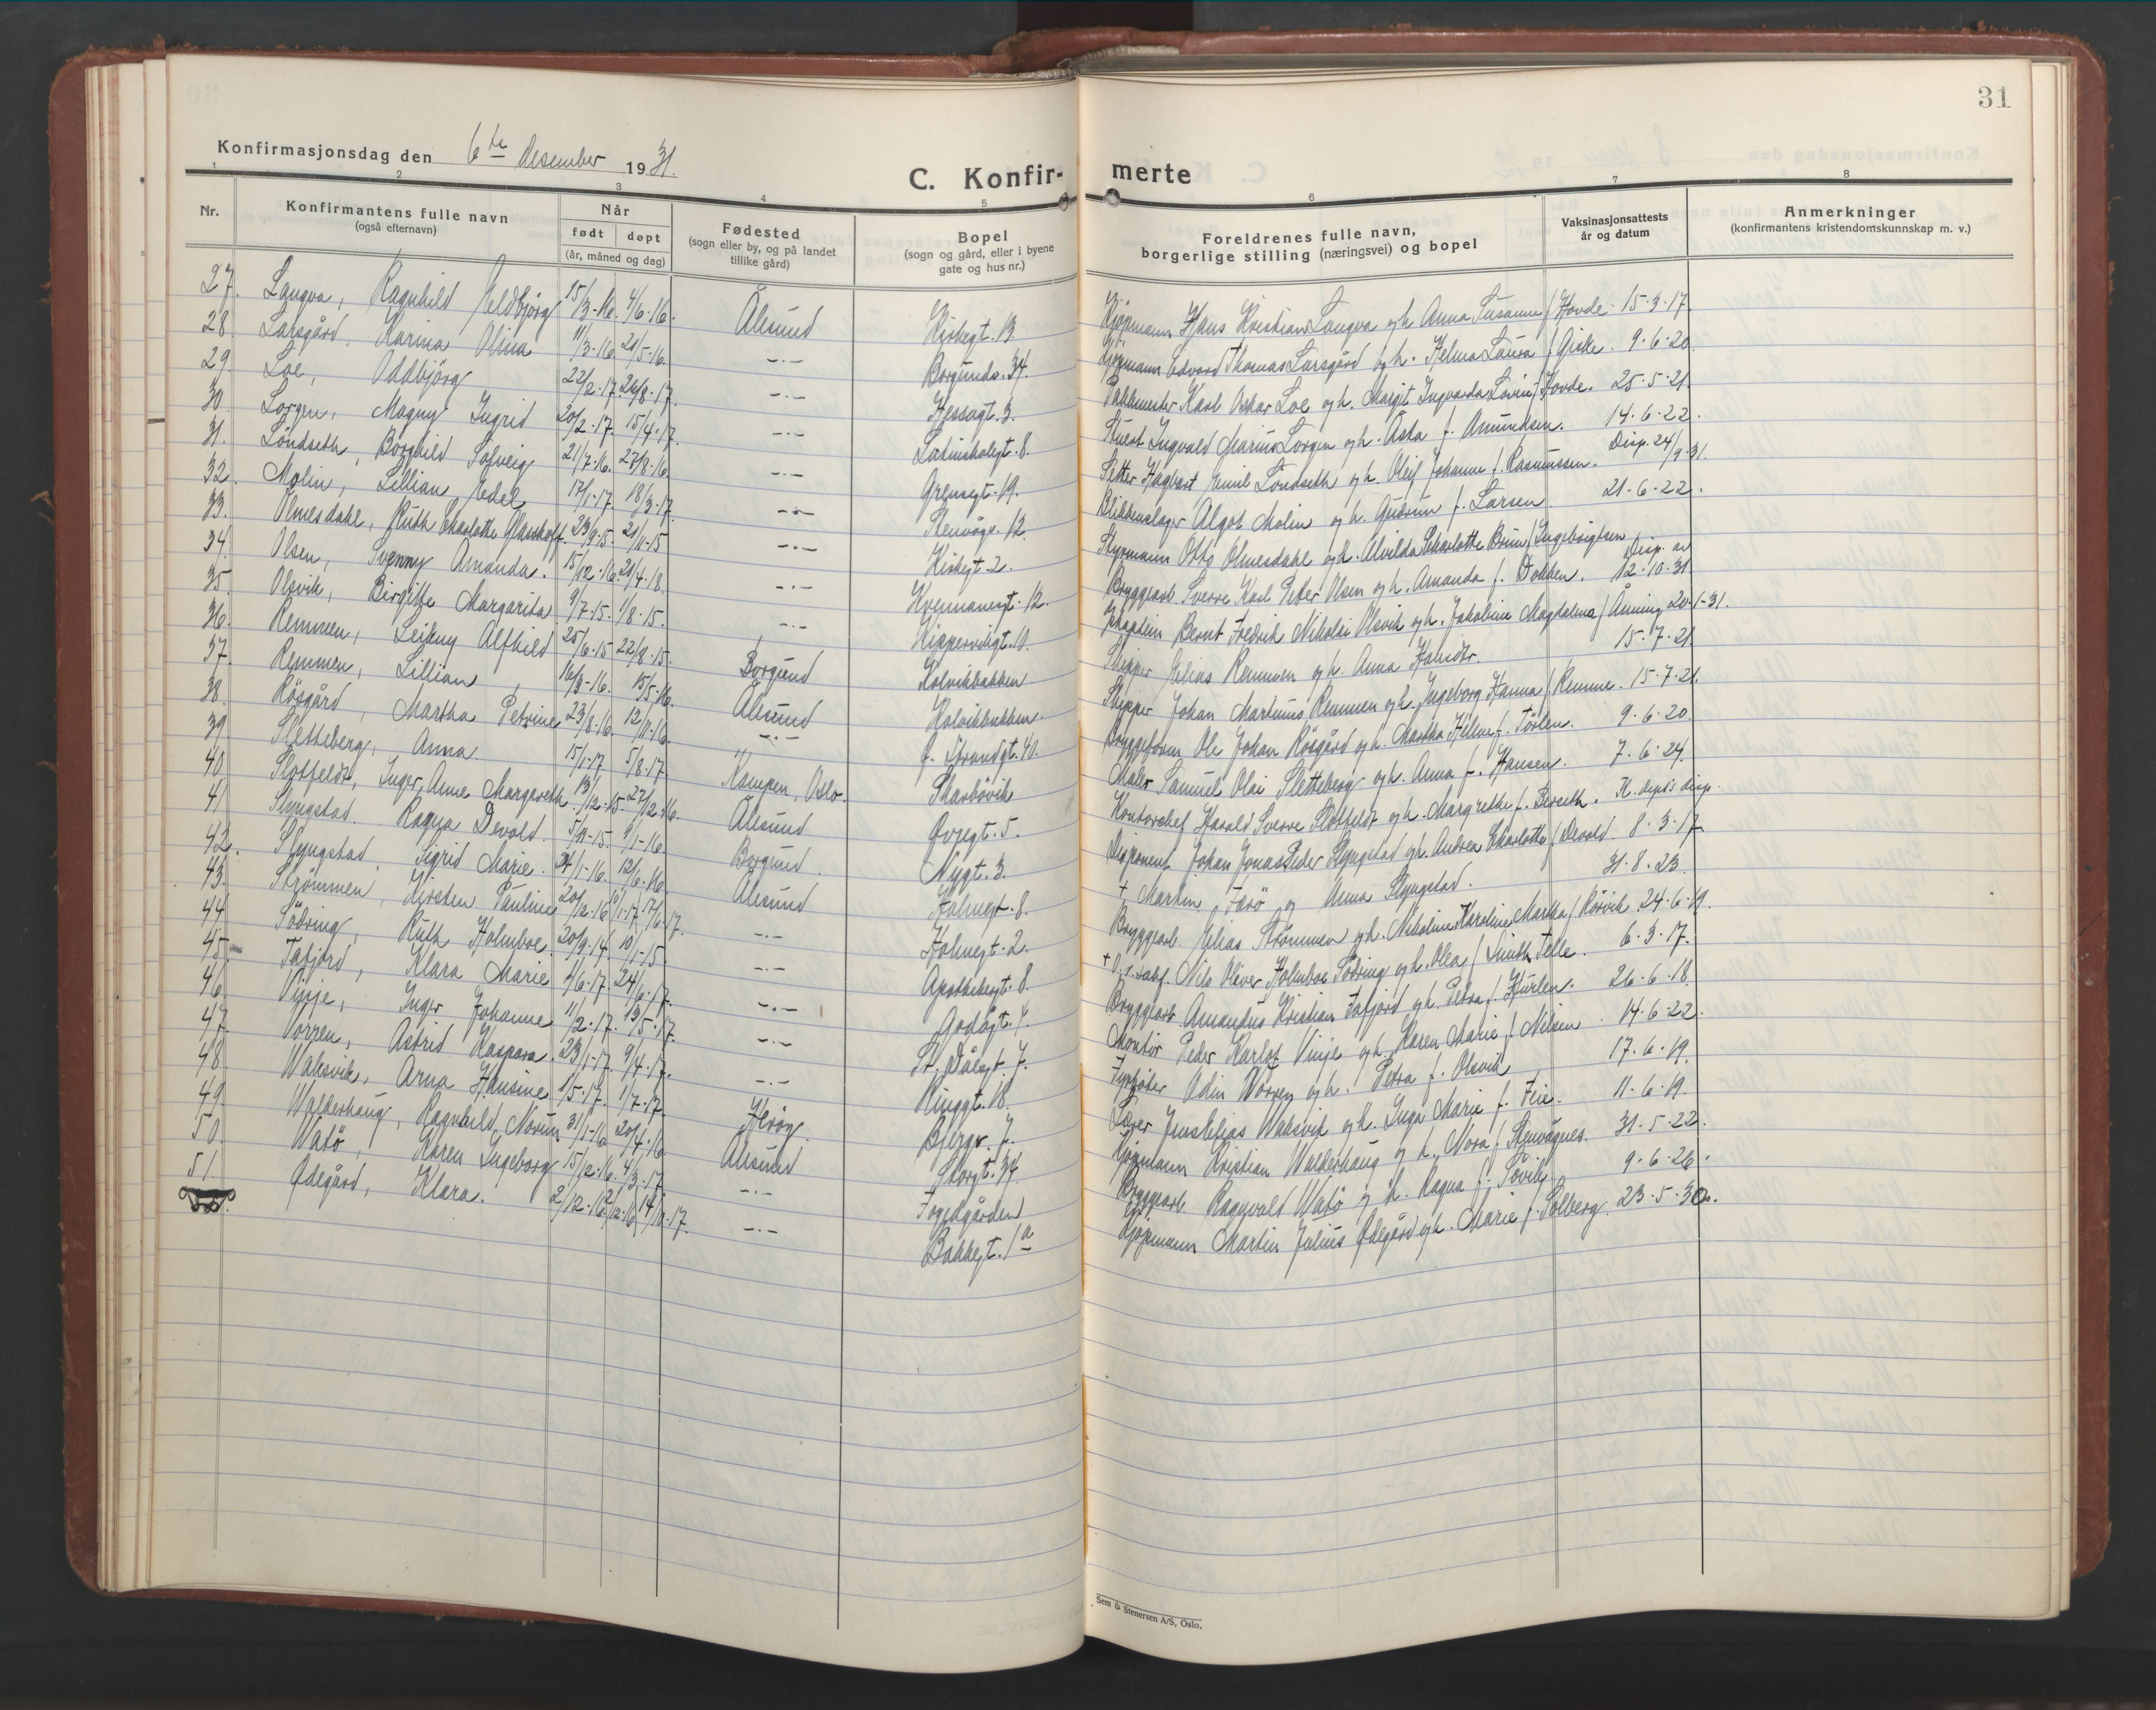 31
Konfirmasjonsdag den 6te Desember 1931.
C. Konfir- merte
1 2 3 4 5 6 7 8
Nr.
Konfirmantens fulle navn
(også efternavn)
Når
født døpt
(år, måned og dag)
Fødested
(sogn eller by, og på landet
tillike gård)
Bopel
(sogn og gård, eller i byene
gate og hus nr.)
Foreldrenes fulle navn,
borgerlige stilling (næringsvei) og bopel
Vaksinasjonsattests
år og datum
Anmerkninger
(konfirmantens kristendomskunnskap m. v.)
27. Langva, Ragnhild Eldbjörg 15/3-16. 4/6-16. Ålesund Kirkegt. 13. Kjøpmann Hans Kristian Langva og h. Anna Susanne f. Hovde. 15-3-17.
28. Larsgård, Karina Olina 11/3-16. 21/5-16. -"- Borgundv. 34. Kjøpmann Edvard Thomas Larsgård og h. Helma Laura f. Giske. 9-6-20.
29. Loe, Oddbjörg 22/2-17. 26/8-17. -"- Hessagt. 3. Pakkmester Karl Oskar Loe og h. Margit Ingvarda Lovise f. Hovde. 25-5-21.
30. Lorgen, Magny Ingrid 20/2-17. 15/4-17. -"- Latinskolegt. 8. Stuert Ingvald Marius Lorgen og h. Asta f. Amundsen. 14-6-22.
31. Löndseth, Borghild Solveig 21/7-16. 27/8-16. -"- Grensegt. 19. Setter Hagbart Emil Löndseth og h. Oleif Johanne f. Rasmussen. Disp. 24/9-31.
32. Molin, Lillian Edel 17/1-17. 18/3-17. -"- Stenvågv. 12. Blikkenslager Algot Molin og h. Gudrun f. Larsen. 21-6-22.
33. Olmesdahl, Ruth Charlotte 23/9-15. 21/11-15 -"- Kirkegt. 2. Styrmann Otto Olmesdahl og h. Alvilda Charlotte Brun f. Ingebrigtsen Disp. av
34. Olsen, Svenny Amanda. 15/12-16. 21/4-18. -"- Kvennavegt. 12. Bryggearb. Sverre Karl Peter Olsen og h. Amanda f. Dokken. 12-10-31
35. Olsvik, Birgitte Margarita 9/7-15. 1/8-15. -"- Kipperviksgt. 10. Kaptein Bernt Fredrik Nikolai Olsvik og h. Jakobine Magdalena f. Ånning 20-1-31.
36. Remmen, Leikny Alfhild 25/6-15 22/8-15. Borgund Kolvikbakken Skipper Elias Remmen og h. Anna Halvdtr. 15-7-21
37. Remmen, Lillian, 16/3-16. 15/5-16. Ålesund Kolvikbakken. Skipper Johan Martinus Remmen og h. Ingeborg Hanna f. Remme. 15-7-21.
38. Rösgård, Martha Petrine 23/8-16. 12/11-16. -"- f. Strandgt. 40. Bryggeform Ole Johan Rösgård og h. Martha Helene f. Törlen. 9-6-20.
39. Sletteberg, Anna. 15/1-17. 5/8-17. Kampen, Oslo. Skarbövik Maler Samuel Olai Sletteberg og h. Anna f. Hansen. 7-6-24.
40. Slotfeldt, Inger Anne Margareth 13/12-15. 27/2-16. Ålesund Øvregt. 5. Kontorchef Harald Sverre Slotfeldt og h. Margrethe f. K. dept's disp.
41. Slyngstad. Ragna Devold. 5/11-15. 9/1-16. Borgund. Nygt. 3. Disponent Johan Jonas Peder Slyngstad og h. Andrea Charlotte f. Devold. 8-3-17
42. Slyngstad, Sigrid Marie. 24/1-16. 12/6-16. Ålesund Holmegt. 8. + Martin, Farö og Anna Slyngstad. 31-8-23.
43. Strömmen, Kirsten Pauline 20/12-16. 17/6-17. -"- Holmegt. 2. Bryggearb. Elias Strömmen og h. Nikoline Karoline Martha f. Rörvik 24-6-19.
44. Södring, Ruth Holmboe. 20/9-14. 10/1-15 -"- Apothekergt. 8. + Nils Oliver Holmboe Södring og h. Olea f. Smith Jelle. 6-3-17.
45. Tafjord, Klara Marie 4/6-17. 24/6-17. -"- Godøgt. 4. Bryggearb. Amandus Kristian Tafjord og h. Petra f. Hurlen. 26-6-18.
46. Vinje, Inger Johanne 11/2-17. 13/5-17. -"- St. Olafsgt. 7. Montör Peder Karlot Vinje og h. Karen Marie f. Nilsen. 14-6-22.
47. Vorren, Astrid Kaspara. 23/1-17. 9/4-17. -"- Ringgt. 18. Fyrböter Odin Vorren og h. Petra f. Olsvik 17-6-19.
48. Walsvik, Arna Hansine 1/5-17. 1/7-17. Herøy. Bjergv. 7. Lærer Jens Elias Walsvik og h. Inga Marie f. Feie. 11-6-19.
49. Walderhaug, Ragnhild Norun 31/1-16 20/4-16 Ålesund Storgt. 34 Kjøpmann Kristian Walderhaug og h. Nora f. Stenvågnes. 31-5-22.
50. Watö, Karen Ingeborg 15/12-16. 4/3-17. -"- Fogedgården Bryggearb. Ragnvald Watö og h. Ragna f. Sövik. 9-6-26.
51. Ødegård, Klara. 2/12-16. 14/10-17. -"- Bakkegt. 1a Kjøpmann Martin Julius Ødegård og h. Marie f. Solberg. 23-5-30.
Sem & Stenersen A/S, Oslo.